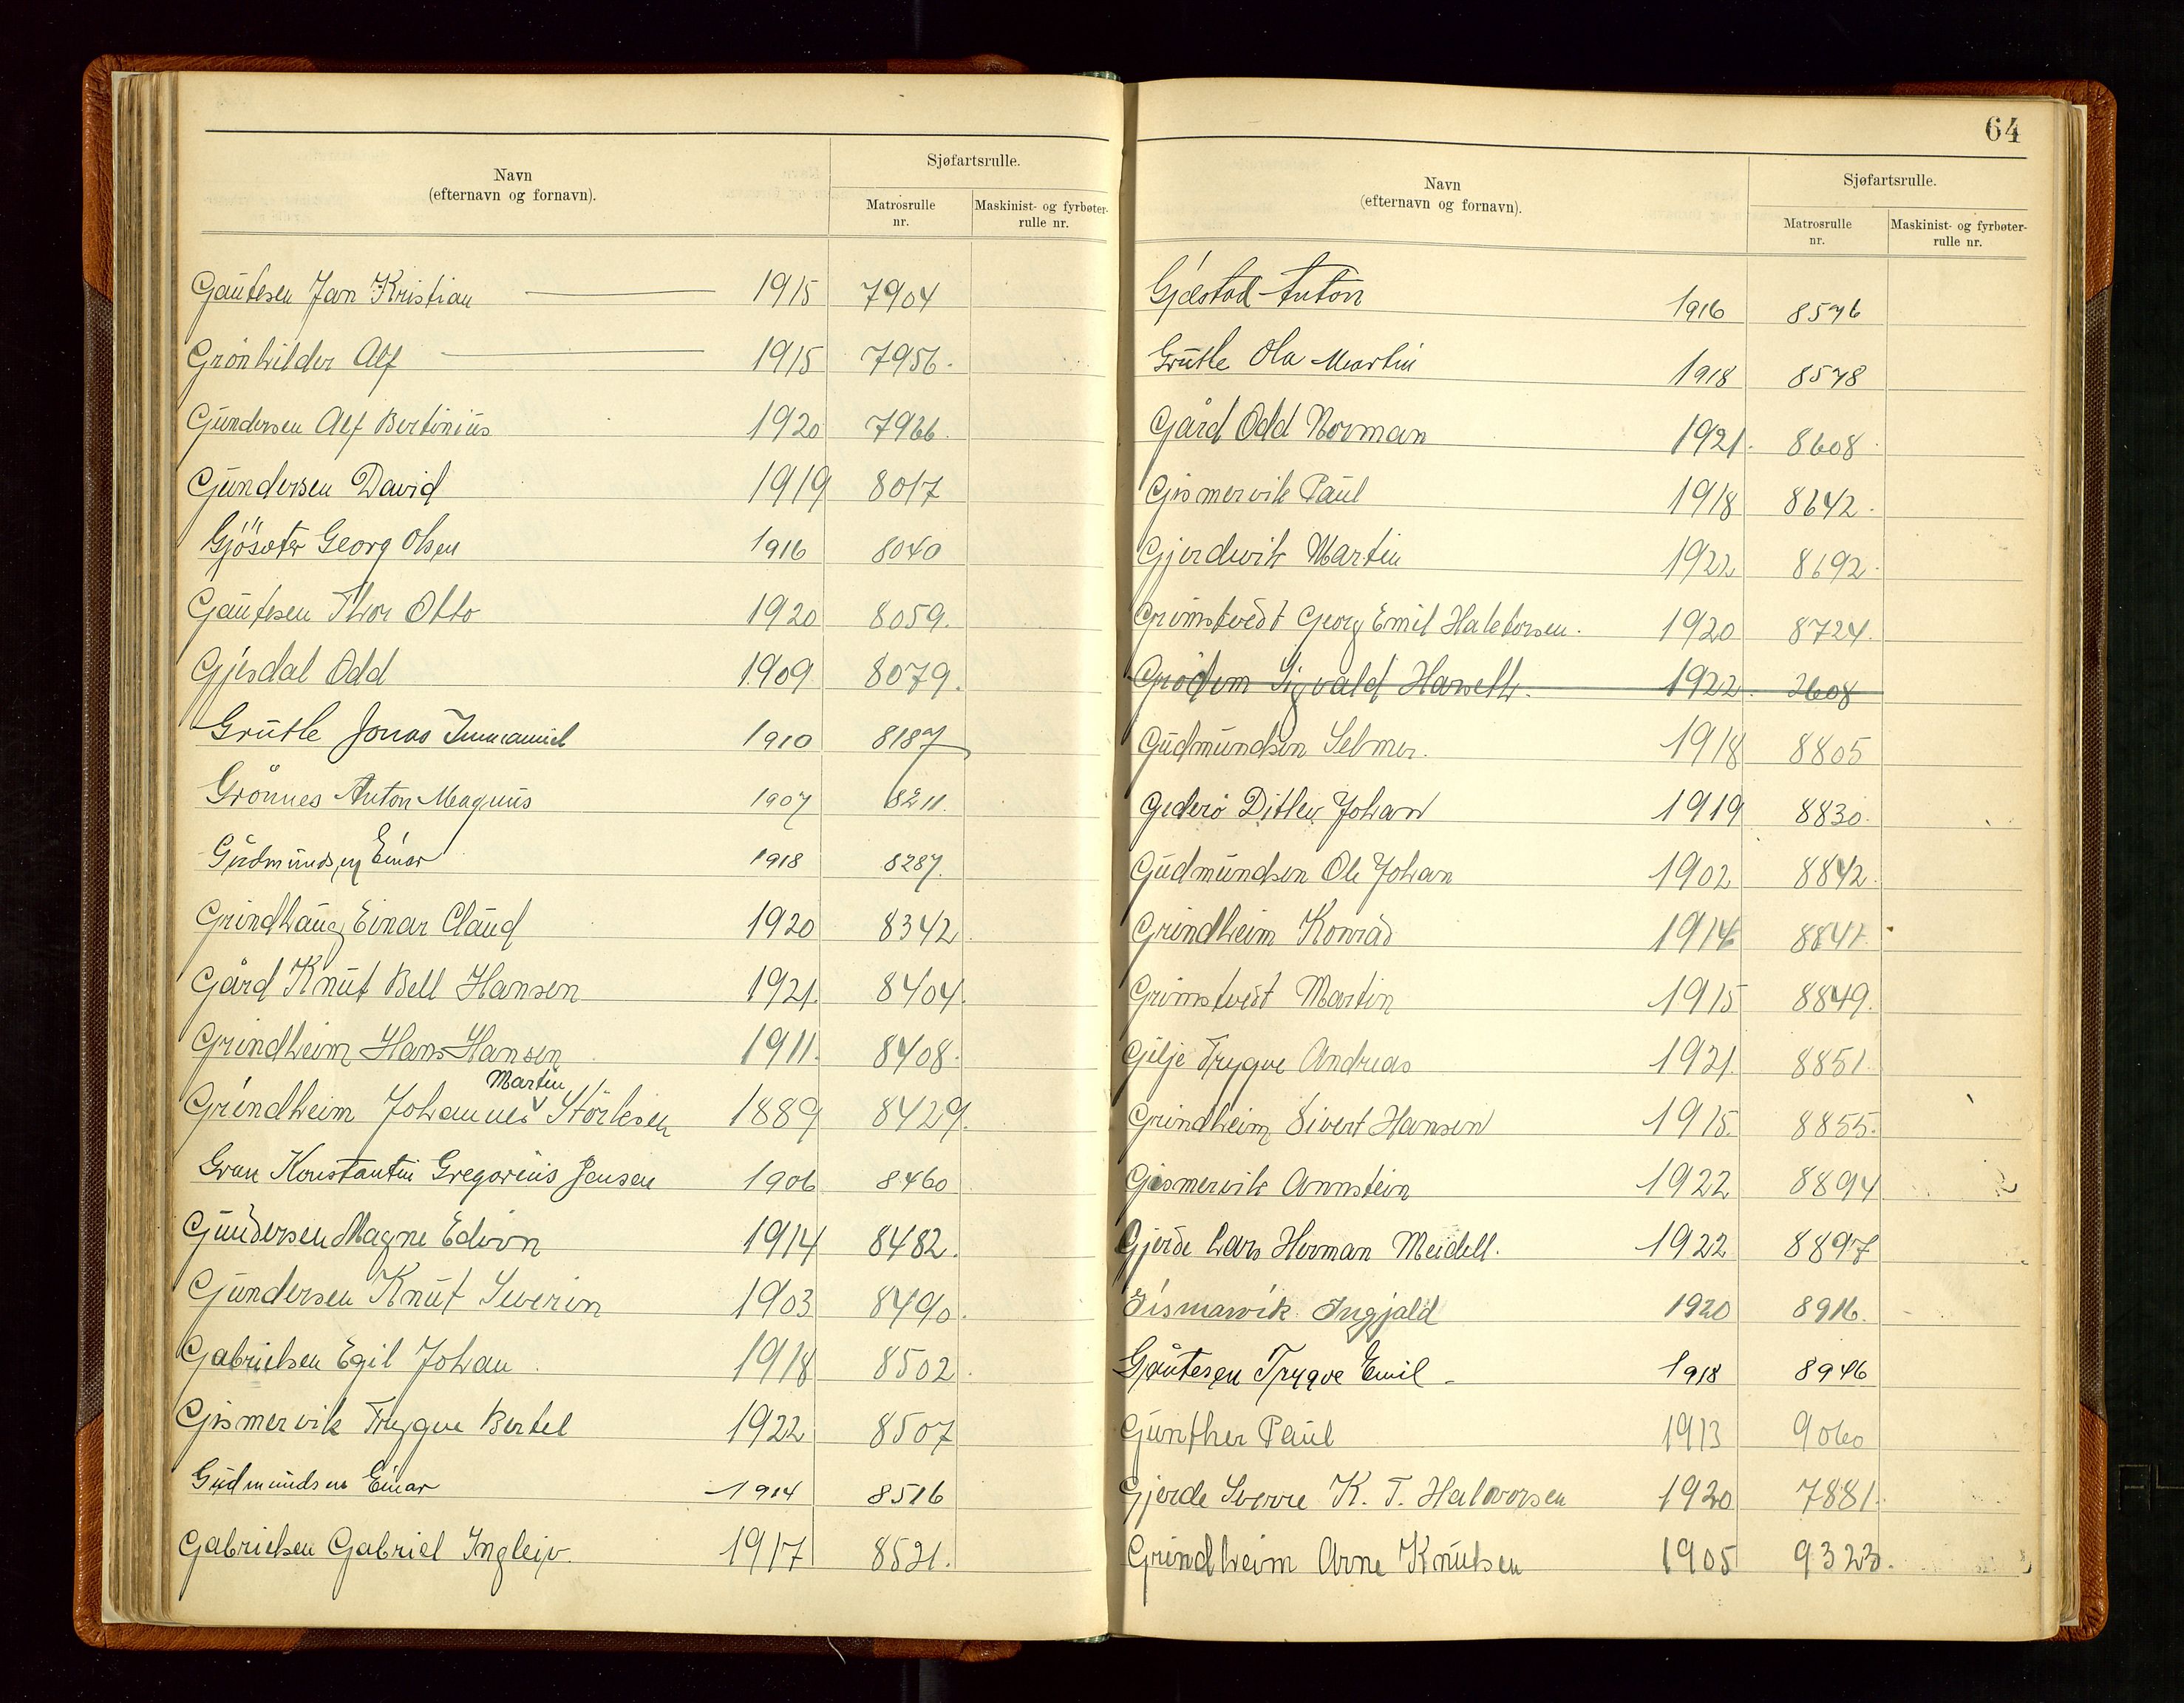 Navn
(efternavn og fornavn).
Sjøfartsrulle.
Matrosrulle nr.
Maskinist- og fyrbøter-rulle nr.
Gautesen Jan Kristian 1915 7904
Grönhilder Alf 1915 7956.
Gundersen Alf Bertinius 1920 7966.
Gundersen David 1919 8017
Gjösæter Georg Olsen 1916 8040
Gautesen Thor Otto 1920 8059.
Gjesdal Odd 1909 8079.
Grutle Jonas Immanuel 1910 8187
Grönnes Anton Magnus 1907 8211.
Gudmundsen Einar 1918 8287.
Grindhaug Einar Claud 1920 8342
Gård Knut Bell Hansen 1921. 8404.
Grindheim Hans Hansen 1911. 8408.
Grindheim Johannes Martin Störksen 1889 8429.
Gran Konstantin Gregorius Jensen 1906 8460
Gundersen Magne Edvin 1914 8482.
Gundersen Knut Severin 1903 8490.
Gabrielsen Egil Johan 1918 8502.
Gismervik Trygve Bertel 1922 8507
Gudmundsen Einar 1914 8516
Gabrielsen Gabriel Ingleiv. 1917 8521.
64
Navn
(efternavn og fornavn).
Sjøfartsrulle.
Matrosrulle nr.
Maskinist- og fyrbøter-rulle nr.
Gjæstad Anton 1916 8576
Grutle Ola Martin 1918 8578
Gård Odd Norman 1921. 8608.
Gismervik Paul 1918 8642.
Gjerdevik Martin 1922 8692.
Grimstvedt Georg Emil Halvorsen. 1920 8724.
Grödem Sigvald 1922. 2608
Gudmundsen Selmer. 1918 8805
Gederö Ditlev Johan 1919 8830.
Gudmundsen Ole Johan 1902 8842.
Grindheim Konrad 1914 8847.
Grimstvedt Martin 1915 8849.
Gilje Trygve Andreas 1921. 8851.
Grindheim Sivert Hansen 1915. 8855.
Gismervik Annstein 1922 8894
Gjerde Lars Herman Meidell. 1922 8897
Gismarvik Ingjald 1920 8916.
Gautesen Trygve Emil 1918 8946
Gunther Paul 1913 9060
Gjerde Sverre K. T. Halvorsen 1920 7881.
Grindheim Arne Knutsen 1905 9323.